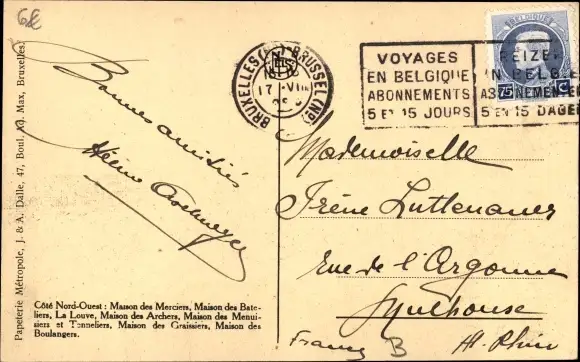 6€
Papeterie Métropole, J. & A. Dalle, 47, Boul. Ad. Max, Bruxelles.
Bonnes amitiés
Côté Nord-Ouest : Maison des Merciers, Maison des Bate-
liers, La Louve, Maison des Archers, Maison des Menui-
siers et Tonneliers, Maison des Graissiers, Maison des
Boulangers.
BRUXELLES (N) BRUSSEL (N)
17 VII
VOYAGES
EN BELGIQUE
ABONNEMENTS
5 ET 15 JOURS
REIZEN
IN BELGIE
ABONNEMENTEN
5 EN 15 DAGEN
BELGIQUE
75 C
Mademoiselle
Irène Luttenauer
Rue de l'Argonne
Mulhouse
France B Ht. Rhin